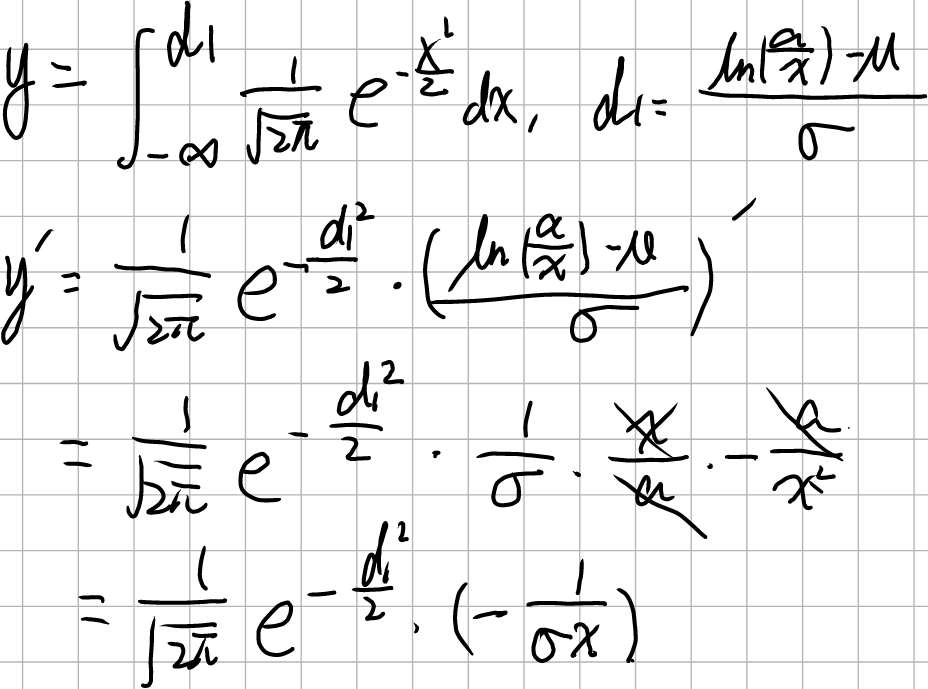 y = ∫_{-∞}^{d1} \frac{1}{\sqrt{2π}} e^{-\frac{x^2}{2}} dx, d1 = \frac{ln(\frac{a}{x}) - μ}{σ}
y' = \frac{1}{\sqrt{2π}} e^{-\frac{d_1^2}{2}} · (\frac{ln(\frac{a}{x}) - μ}{σ})'
= \frac{1}{\sqrt{2π}} e^{-\frac{d_1^2}{2}} · \frac{1}{σ} · \frac{x}{a} · -\frac{a}{x^2}
= \frac{1}{\sqrt{2π}} e^{-\frac{d_1^2}{2}} · (-\frac{1}{σx})